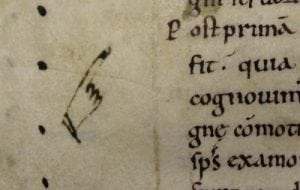 P ost primā
fit · quia
cognovim
gnę cōmot
sps̄ examo